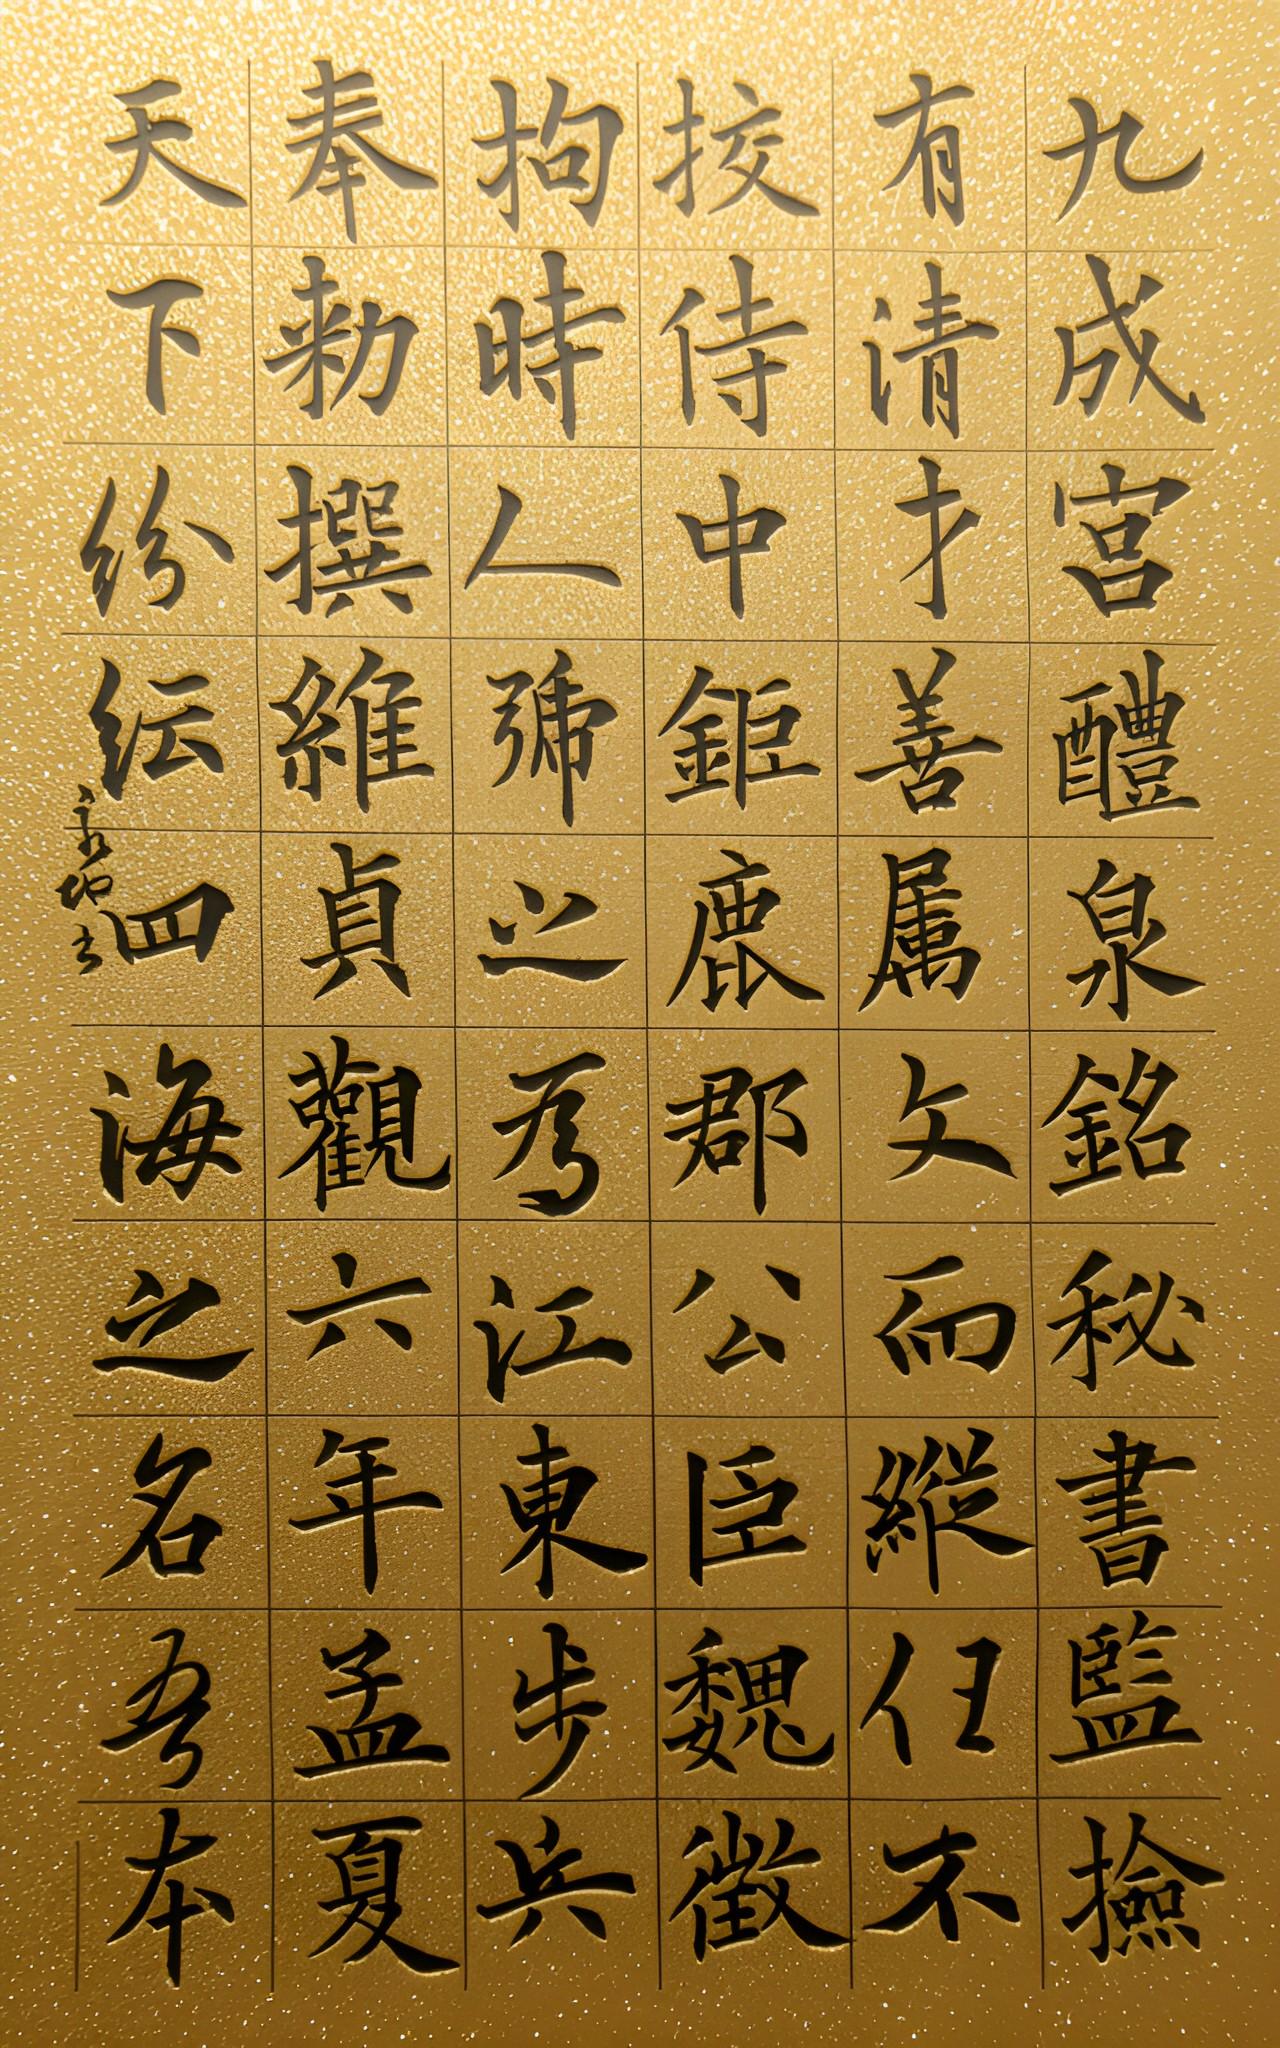 九成宮醴泉銘秘書監撿
有清才善属文而縱任不
挍侍中鉅鹿郡公臣魏徵
拘時人號之為江東步兵
奉勑撰維貞觀六年孟夏
天下紛紜四海之名吾本